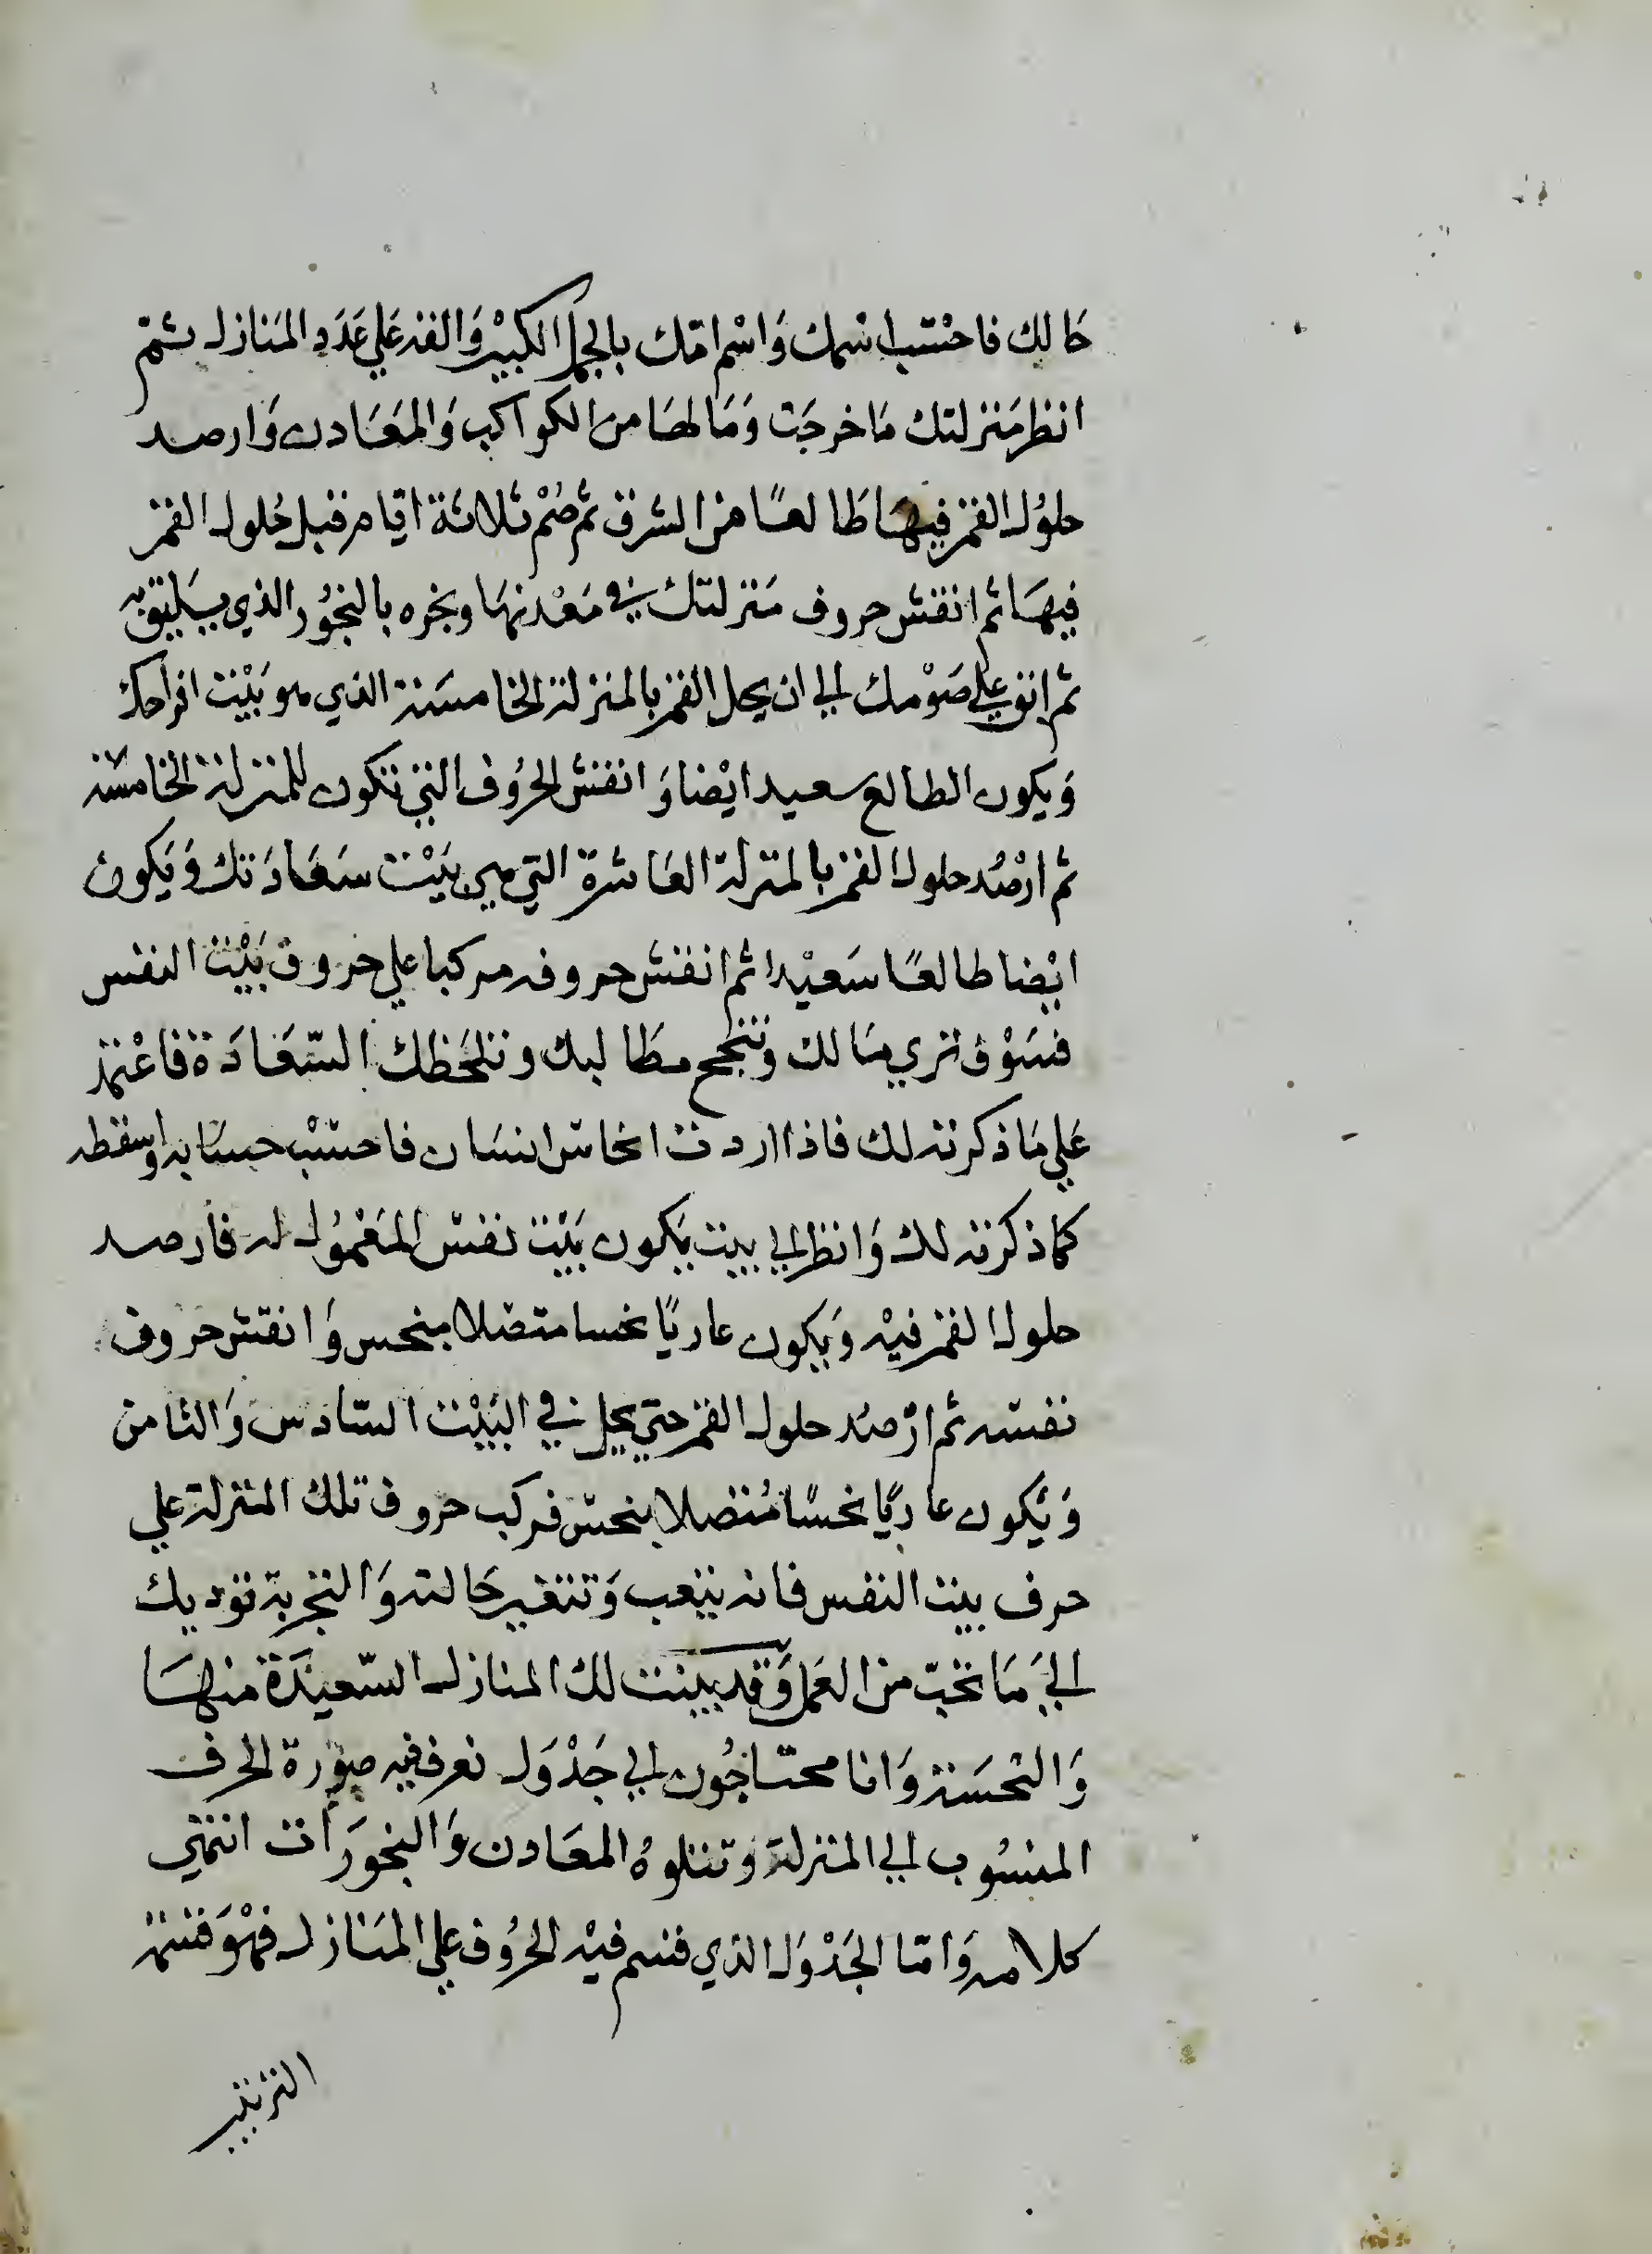 حَالك فاحْتسب اسْمك وَاسْم امّك بالجمل الكبيْر وَالقه عَلي عَدَد المَنازل ثمّ
انظر مَنزلتك مَا خرجَت وَمَا لهَا من الكواكب وَالمعَادن وَارصد
حلوُل القمر فيهَا طَالعًا من الشرق ثم صُمْ ثلاثة ايّام قبل حُلول القمر
فيهَا ثم انقش حروف مَنزلتك في مَعْدنهَا وبخره بالبخُور الذي يَليق به
ثم ابق علي صَوْمك الي ان يحل القمر بالمنزلة الخامسَة الذي هو بَيْت افراحك
وَيكون الطالع سعيد ايْضا وَانقش الحرُوف التي تكون للمنزلة الخامسَة
ثم ارْصُد حلول القمر بالمنزلة العَاشرة التي هي بَيْت سَعَادَتك وَيَكون
ايْضا طالعًا سَعيْدا ثم انقش حروفه مركبا علي حروف بَيْت النفس
فسَوْف تري مَالك وَتنجح مطَالبك وتلحَظك السّعَادَة فاعْتمد
عَلي مَا ذكرته لك فاذا اردت انحاس انسَان فاحتسْب حسَابه واسقطه
كما ذكرته لك وَانظر الي بيت يَكون بَيْت نفس المَعْمُول له فارصد
حلول القمر فيْه وَيكون عاريًا نحسا متصلا بنحس وَانقش حروف
نفسه ثم ارْصُد حلول القمر حتي يحل في البَيْت السّادس وَالثامن
وَيَكون عاريًا نحسًا مُتصلا بنحس فركب حروف تلك المنزلة علي
حرف بيت النفس فانه يتعب وَتتغير حَالته وَالتجربة توديك
اليَ مَا تحبّ من العَمل وَقد بينت لك المنازل السّعيدَة منهَا
وَالنحسَة وَانا محتاجُون الي جَدْوَل نعرف فيه صوُرة الحرف
المنسُوب الي المنزلة وتتلوهُ المعَادن وَالبخورَات انتهي
كلامه وَامّا الجَدْوَل الذي قسم فيْه الحرُوف علي المنَازل فهْوَ قسْمة
الترتيب